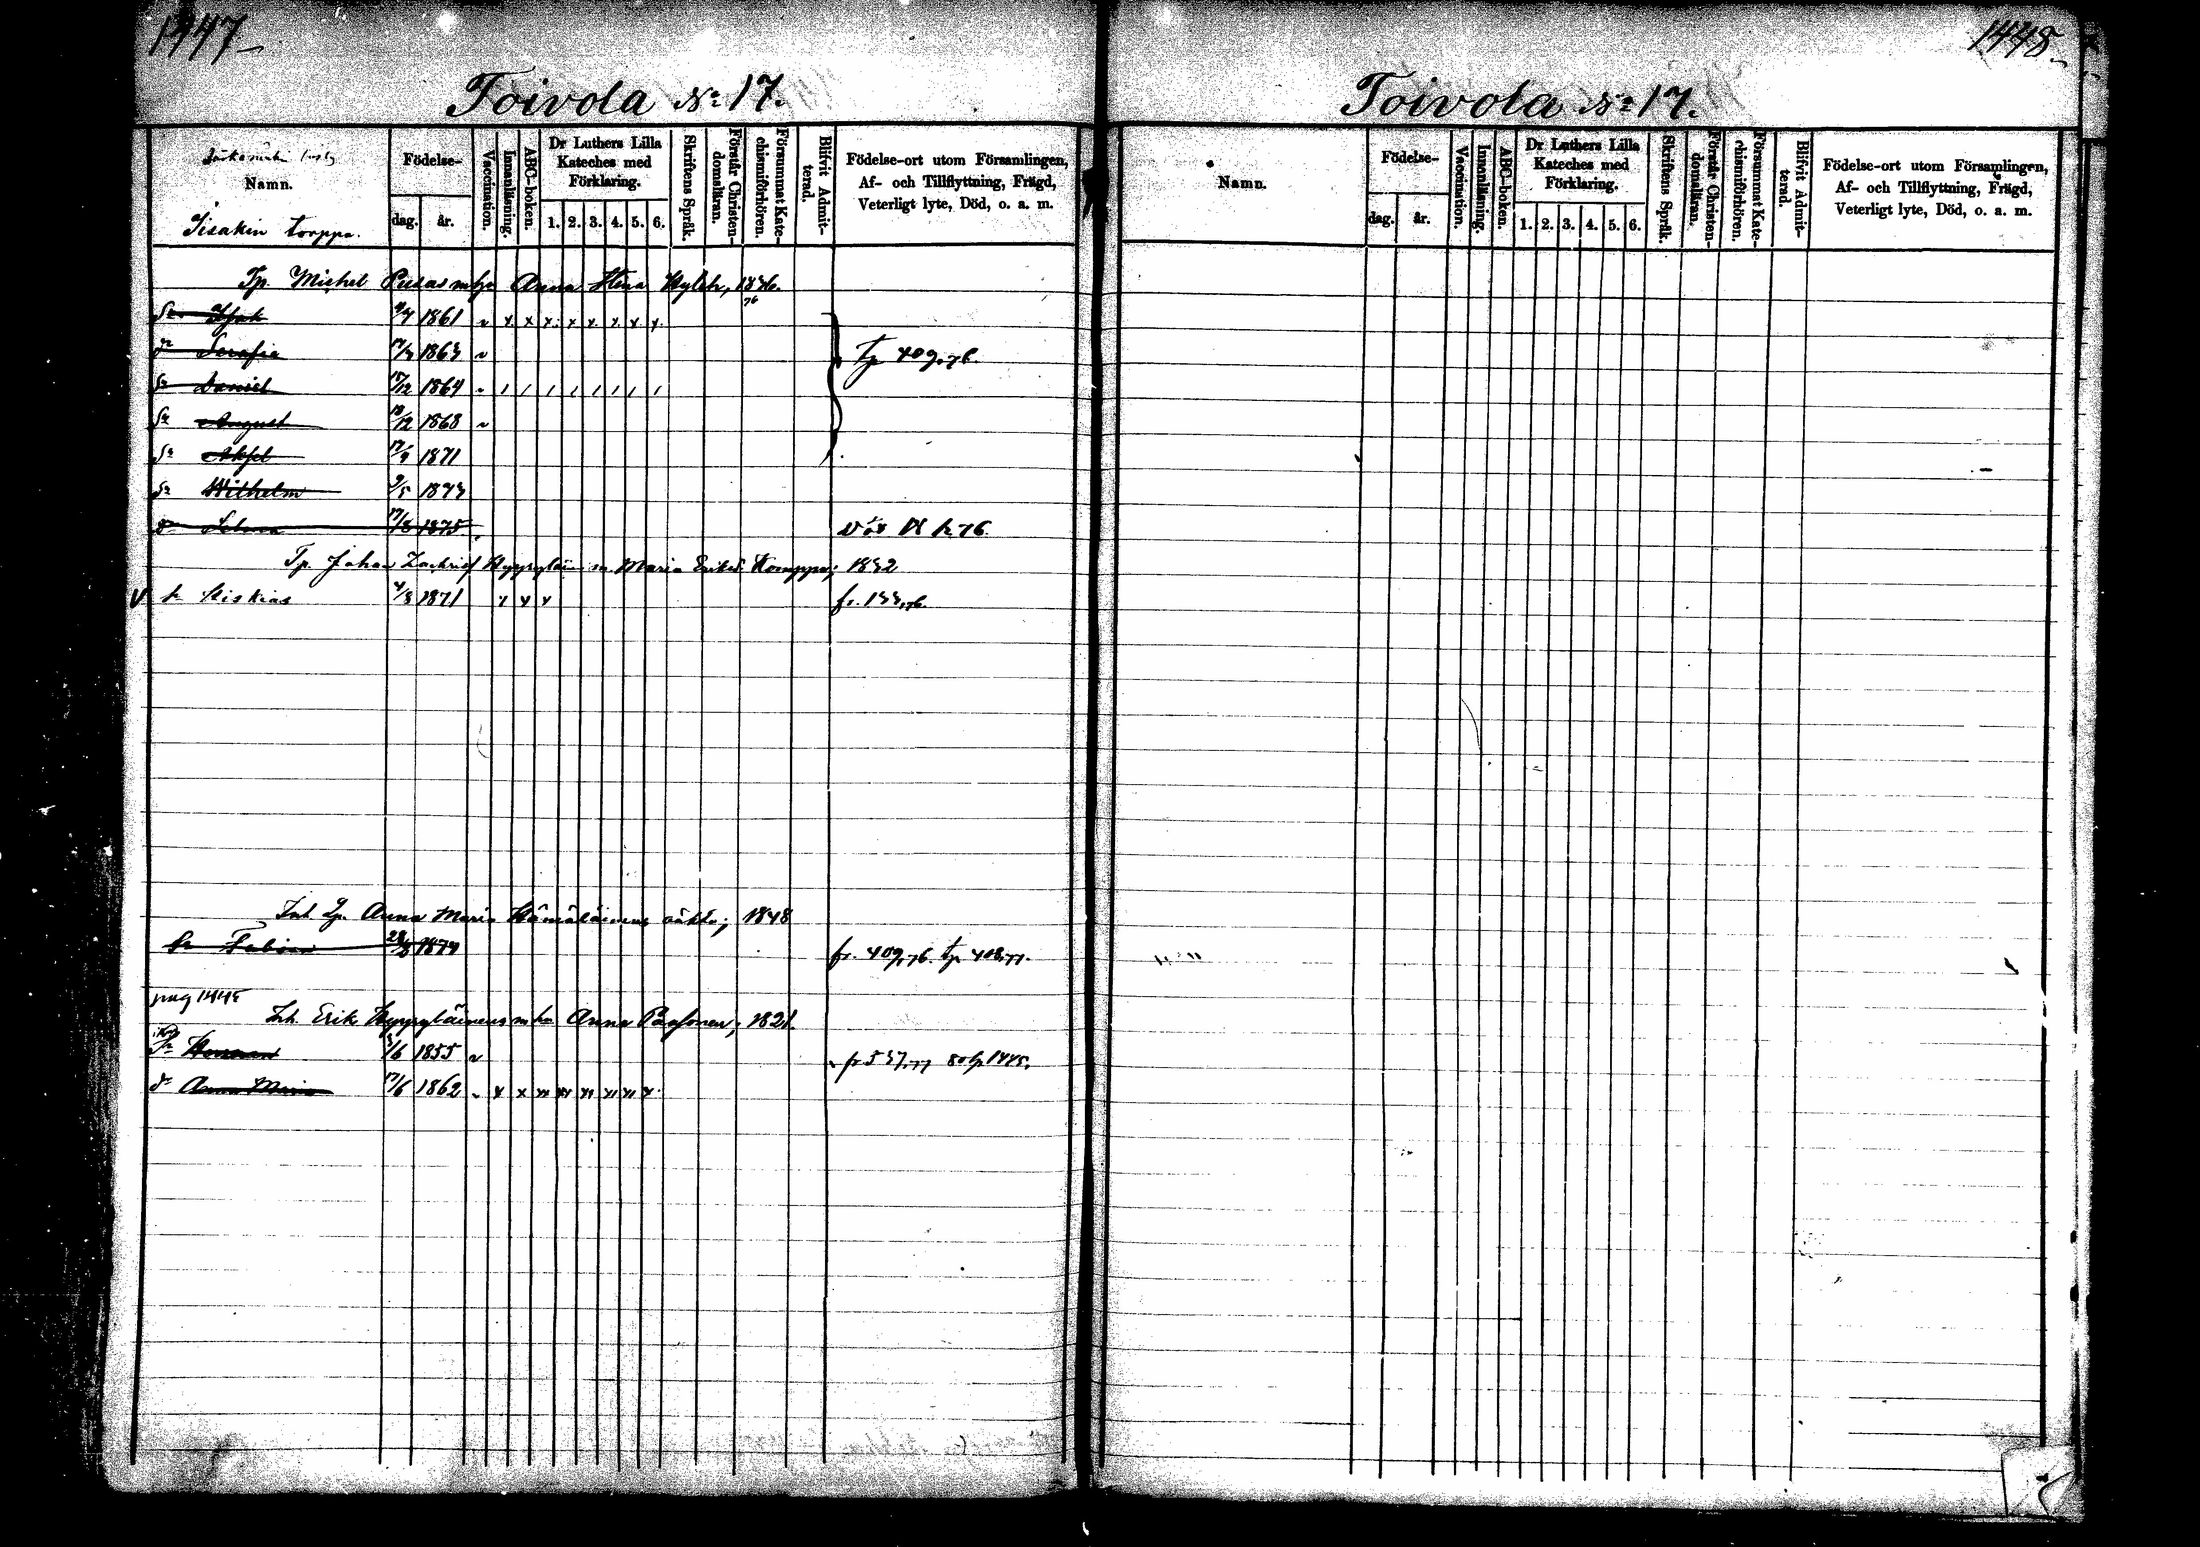 1447
Toivola No 17.
Namn.
Iisakin torppa.
Födelse-
dag. år.
Vaccination.
Innanläsning.
ABC-boken.
Dr Luthers Lilla Kateches med Förklaring.
1. 2. 3. 4. 5. 6.
Skriftens Språk.
Förstår Christendomsläran.
Försummat Katechismiförhören.
Blifvit Admitterad.
Födelse-ort utom Församlingen, Af- och Tillflyttning, Frägd, Veterligt lyte, Död, o. a. m.
Tp. Michel Pusas m h Anna Stina 1836.
76
Sn Isak 1861 v x x x x x x x x
dr Serafia 1863 v tp 409,76.
Sn Daniel 18/12 1864
Sn August 18/12 1868 v
Sn Aksel 17/9 1871
Sn Wilhelm 9/5 1873
dr Selma 17/8 1875 död 76.
Tp. Johan Zachrisf Hyppyläin m Maria Eriksd. Komppa; 1832
V Sn Kiskias 4/3 1871 x x x fr. 133,76.
Inh. Anna Maria Hämäläinens oäkta; 1848
Sn Fabian 1874 fr. 409,76. tp 408,77.
pag 1445
Inh. Erik Hyppyläinens m h Anna Paasonen; 1821.
Sn Herman 5/6 1855 v fr 537,77 80 fp 1445.
dr Anna Maria 17/6 1862
1448.
Toivola No 17.
Namn.
Födelse-
dag. år.
Vaccination.
Innanläsning.
ABC-boken.
Dr Luthers Lilla Kateches med Förklaring.
1. 2. 3. 4. 5. 6.
Skriftens Språk.
Förstår Christendomsläran.
Försummat Katechismiförhören.
Blifvit Admitterad.
Födelse-ort utom Församlingen, Af- och Tillflyttning, Frägd, Veterligt lyte, Död, o. a. m.